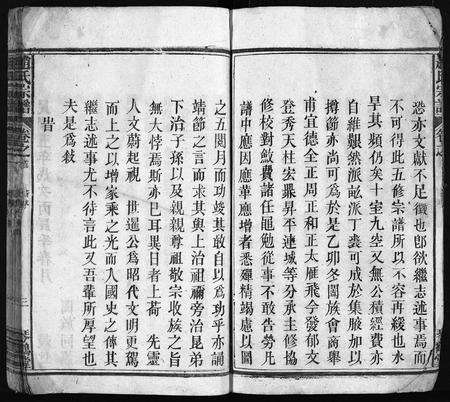 恐亦文獻不足徵也卽欲繼志述事焉而
不可得此五修宗譜所以不容再緩也水
旱其頻仍矣十室九空又無公積經費亦
自維艱然派畝派丁裘可成於集腋加以
撙節亦尚可為於是乙卯冬闔族會商舉
甫宜德全正周正和正太雁飛今發郁文
登秀天柱宏鼎昇平連城等分承主修協
修校對斂費諸任黽勉從事不敢告勞凡
譜中應因應革應增者悉殫精竭慮以圖
之五閱月而功竣其敢自以為功乎亦誦
靖節之言而求其與上治祖禰旁治昆弟
下治子孫以及親親尊祖敬宗收族之旨
無大悖焉斯亦巳耳異日者上荷　先靈
人文蔚起視　世運公為昭代文明更駕
而上之以增家乘之光而入國史之傳其
繼志述事尤不待言此又吾輩所厚望也
夫是為敍
昔
趙氏宗譜
卷之
三